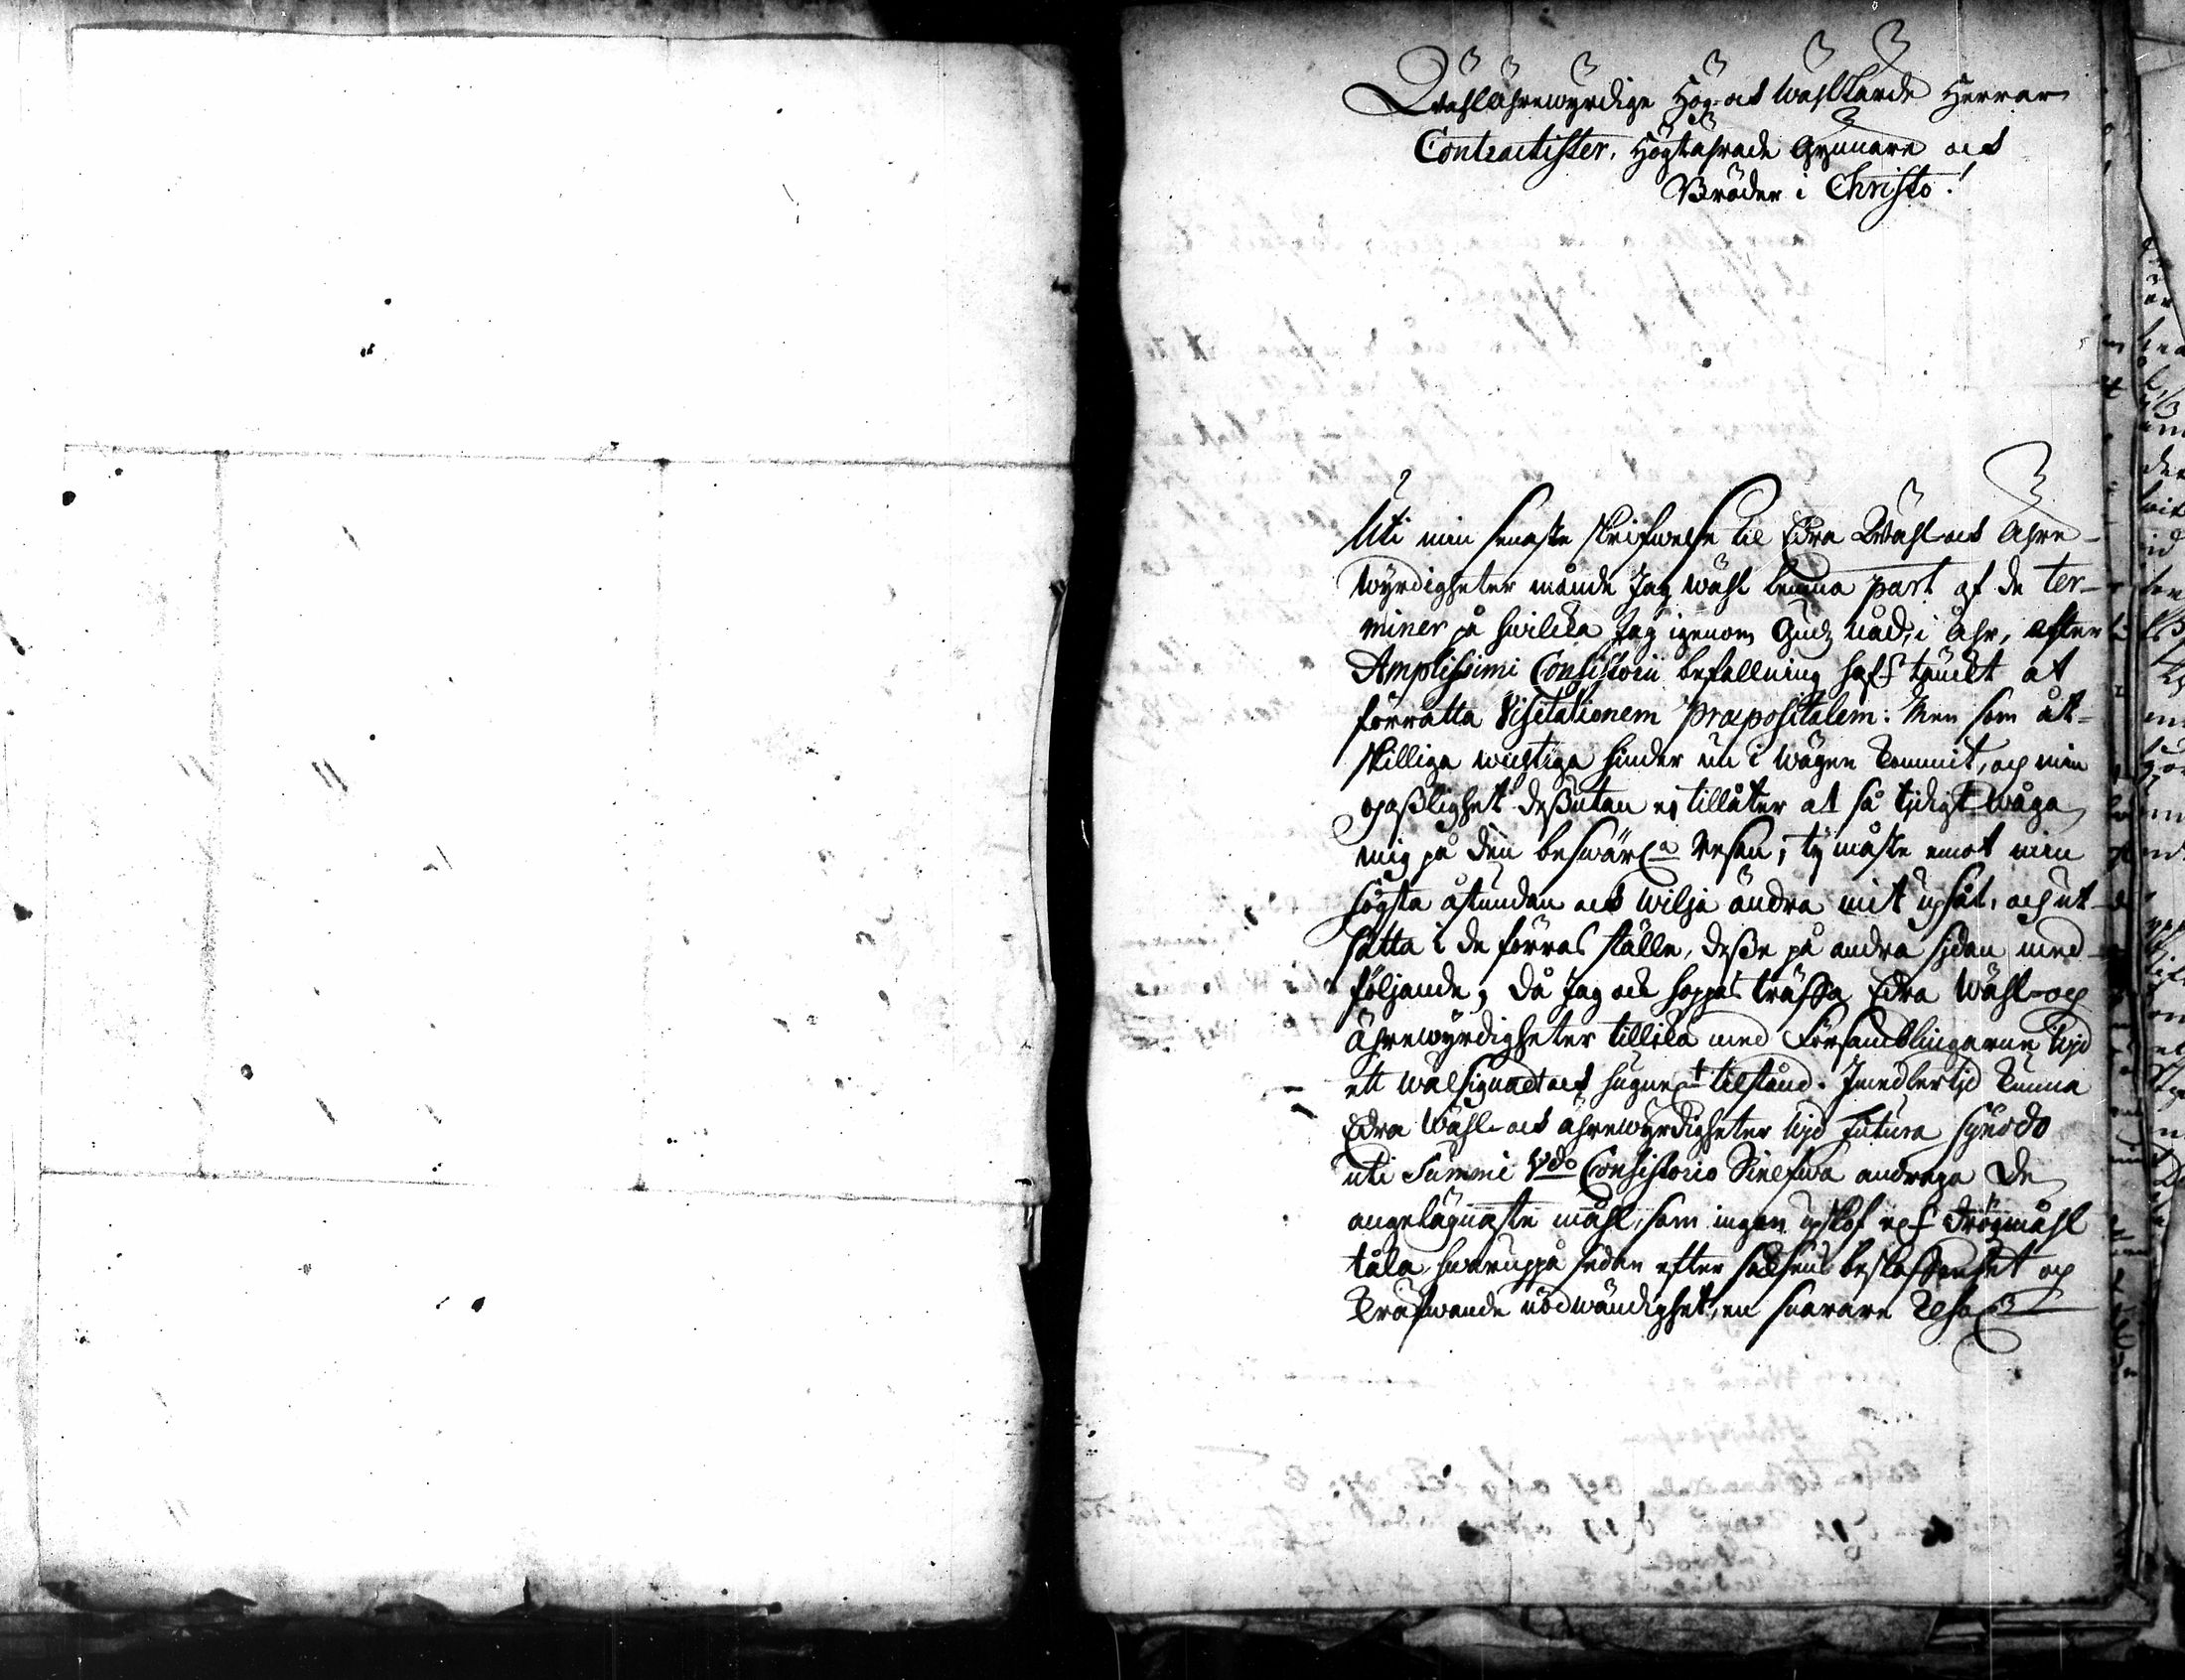 Wählährewyrdige Hög- och Wählärde Herrar
Contractister, Högtährade Gynnare och
Bröder i Christo!
Uti min senaste skrifwelse til Edra Wähl- och Ähre-
wyrdigheter månde Jag wähl lemna part af de ter-
miner på hwilcka Jag igenom Gudz nåd, i åhr, efter
Amplissimi Consistorii befallning haf:r tänckt at
förrätta Visitationem Præpositalem: Men som åt-
skilliga wichtiga hinder nu i wägen kommit, och min
opasslighet dessutan ej tillåter at så tjdigt wåga
mig på den beswärl:a resan; ty måste emot min
högsta åstundan och wilja ändra mit upsåt, och ut-
sätta i de förras ställe, desse på andra sidan med
följande, då Jag ock hoppas träffa Edra Wähl- och
Ährewyrdigheter tillika med Församblingarne wid
ett wälsignadt och hugnel:t tilstånd. Imedlertjd kunna
Edra Wähl- och Ährewyrdigheter wid futura Synodo
uti Summe V:do Consistorio Sielfwa andraga de
angelägnaste måhl, som ingen upskof el:r drögmåhl
tåla, hwaruppå sedan efter sakens beskaffenhet och
kräfwande nödwändighet, en snarare